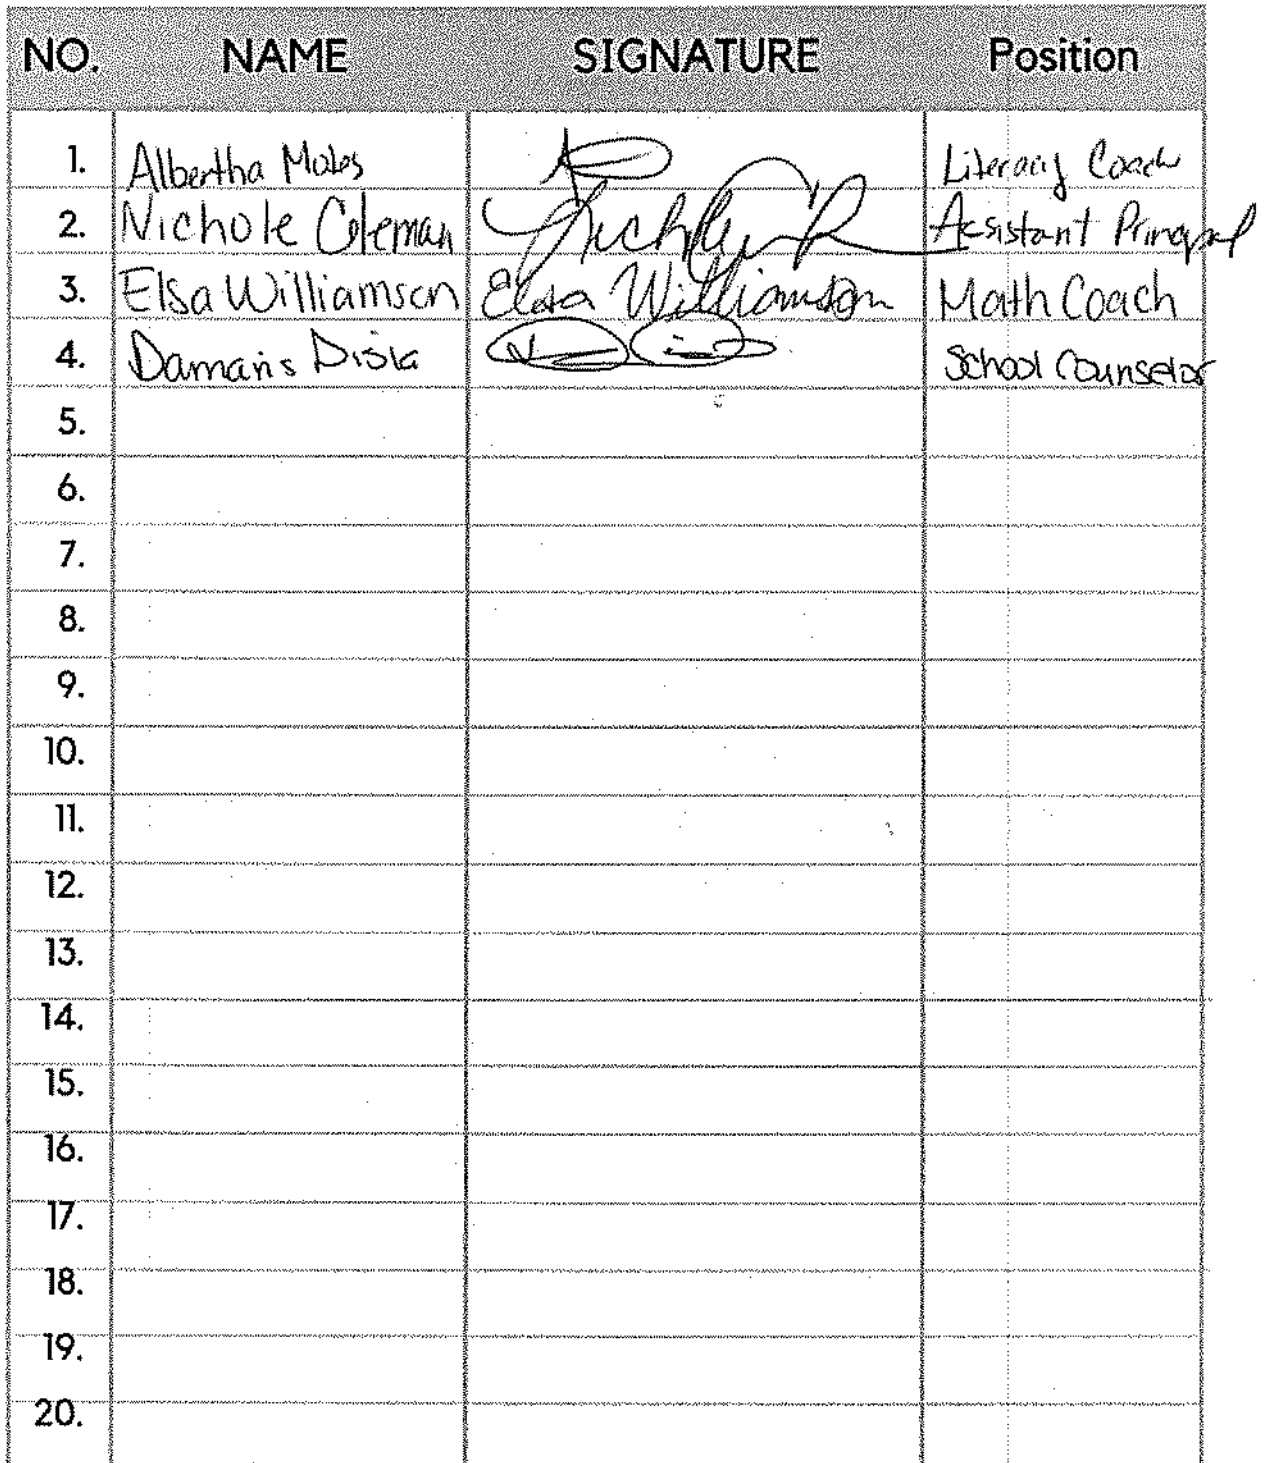 NO. NAME SIGNATURE Position
1. Albertha Moles Literacy Coach
2. Nichole Coleman Assistant Principal
3. Elsa Williamson Elsa Williamson Math Coach
4. Damaris School Counselor
5.
6.
7.
8.
9.
10.
11.
12.
13.
14.
15.
16.
17.
18.
19.
20.